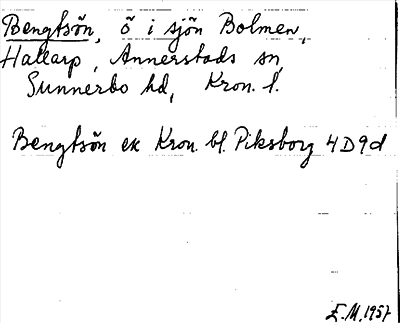 Bengtsön, ö i sjön Bolmen,
Hallarp, Annerstads sn,
Sunnerbo hd, Kron. l.
Bengtsön ek Kron. bl. Piksborg 4D9d
E.M. 1957